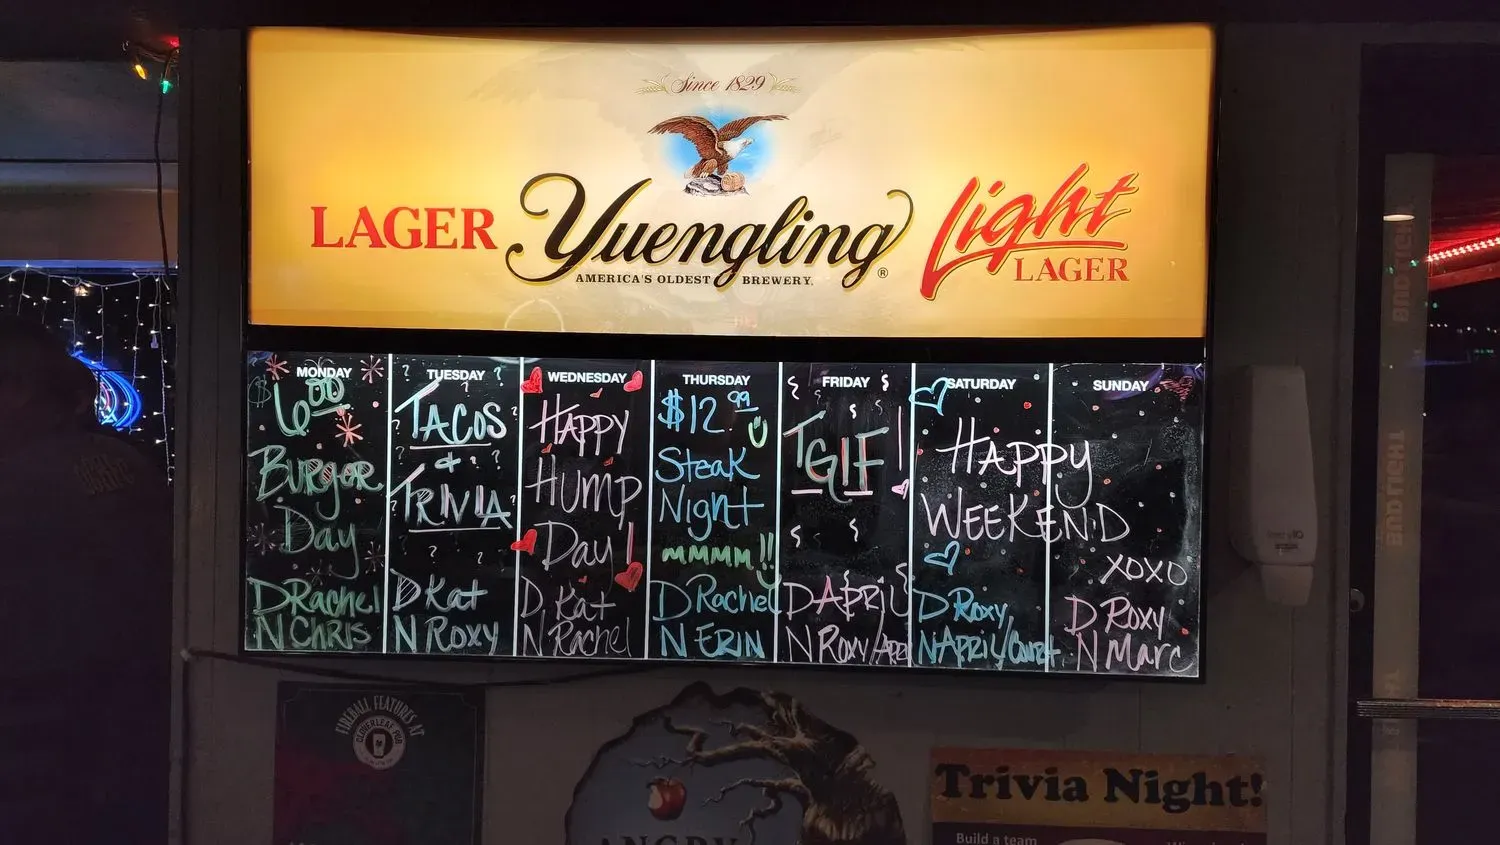 Since 1829
LAGER
Yuengling®
Light
LAGER
AMERICA'S OLDEST BREWERY.
MONDAY
$6.00
Burger
Day
D Rachel
N Chris
TUESDAY
TACOS
+
TRIVIA
D Kat
N Roxy
WEDNESDAY
HAPPY
HUMP
Day!
D. Kat
N Rachel
THURSDAY
$12.99
Steak
Night
mmmm!!
D Rachel
N ERIN
FRIDAY
TGIF!
D APRIL
N Roxy/
SATURDAY
SUNDAY
HAPPY
WEEKEND
XOXO
D Roxy
N APRIL/
D Roxy
N Marc
FIREBALL FEATURES AT
CLOVERLEAF PUB
ANGRY
Trivia Night!
Build a team
BUD LIGHT
BUD LIGHT